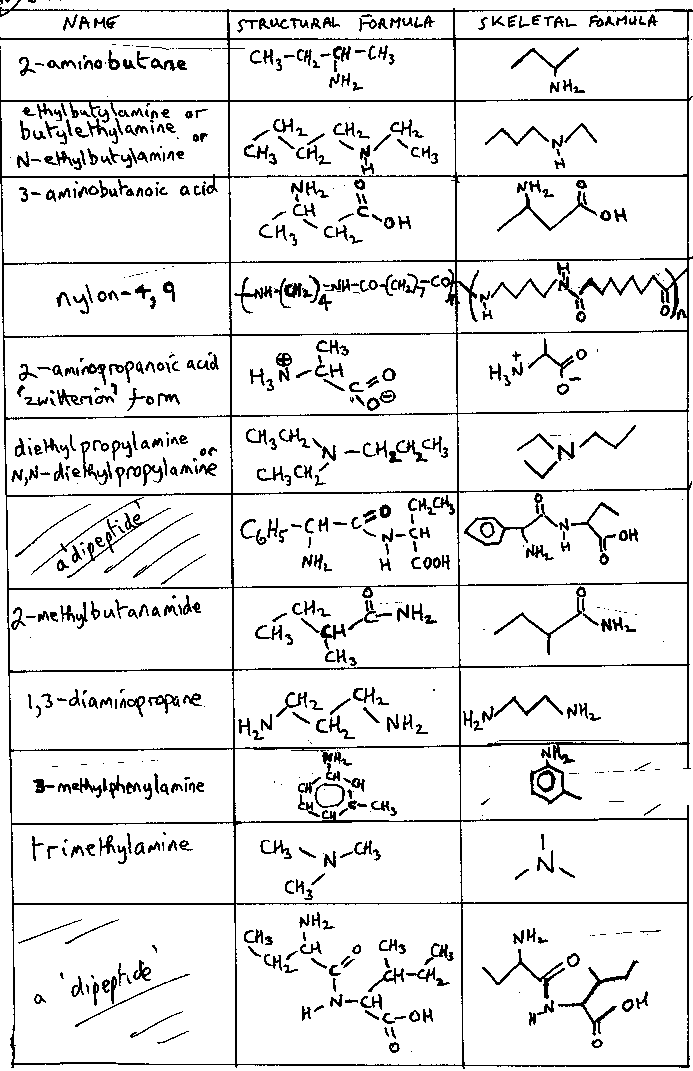 NAME STRUCTURAL FORMULA SKELETAL FORMULA
2-aminobutane
CH3-CH2-CH-CH3
NH2
NH2
ethylbutylamine or
butylethylamine or
N-ethylbutylamine
CH2 CH2 CH2
CH3 CH2 N CH3
H
N
H
3-aminobutanoic acid
NH2 O
CH C
CH3 CH2 OH
NH2 O
OH
nylon-4,9
(-NH-(CH2)4-NH-CO-(CH2)7-CO)n
H
N N
H O O n
2-aminopropanoic acid
"zwitterion" form
⊕ CH3
H3N CH
C=O
O⊖
+
H3N O
O−
diethylpropylamine or
N,N-diethylpropylamine
CH3CH2
N-CH2CH2CH3
CH3CH2
N
a 'dipeptide'
CH2CH3
C6H5-CH-C=O
N-CH
NH2 H COOH
O
N OH
NH2 H O
2-methylbutanamide
O
CH2 C-NH2
CH3 CH
CH3
O
NH2
1,3-diaminopropane
CH2 CH2
H2N CH2 NH2
H2N NH2
3-methylphenylamine
NH2
CH
CH CH
CH C-CH3
CH
NH2
trimethylamine
CH3 N-CH3
CH3
N
a 'dipeptide'
NH2
CH3 CH O CH3 CH3
CH2 C CH-CH2
H-N-CH
C-OH
O
NH2
O
H N OH
O